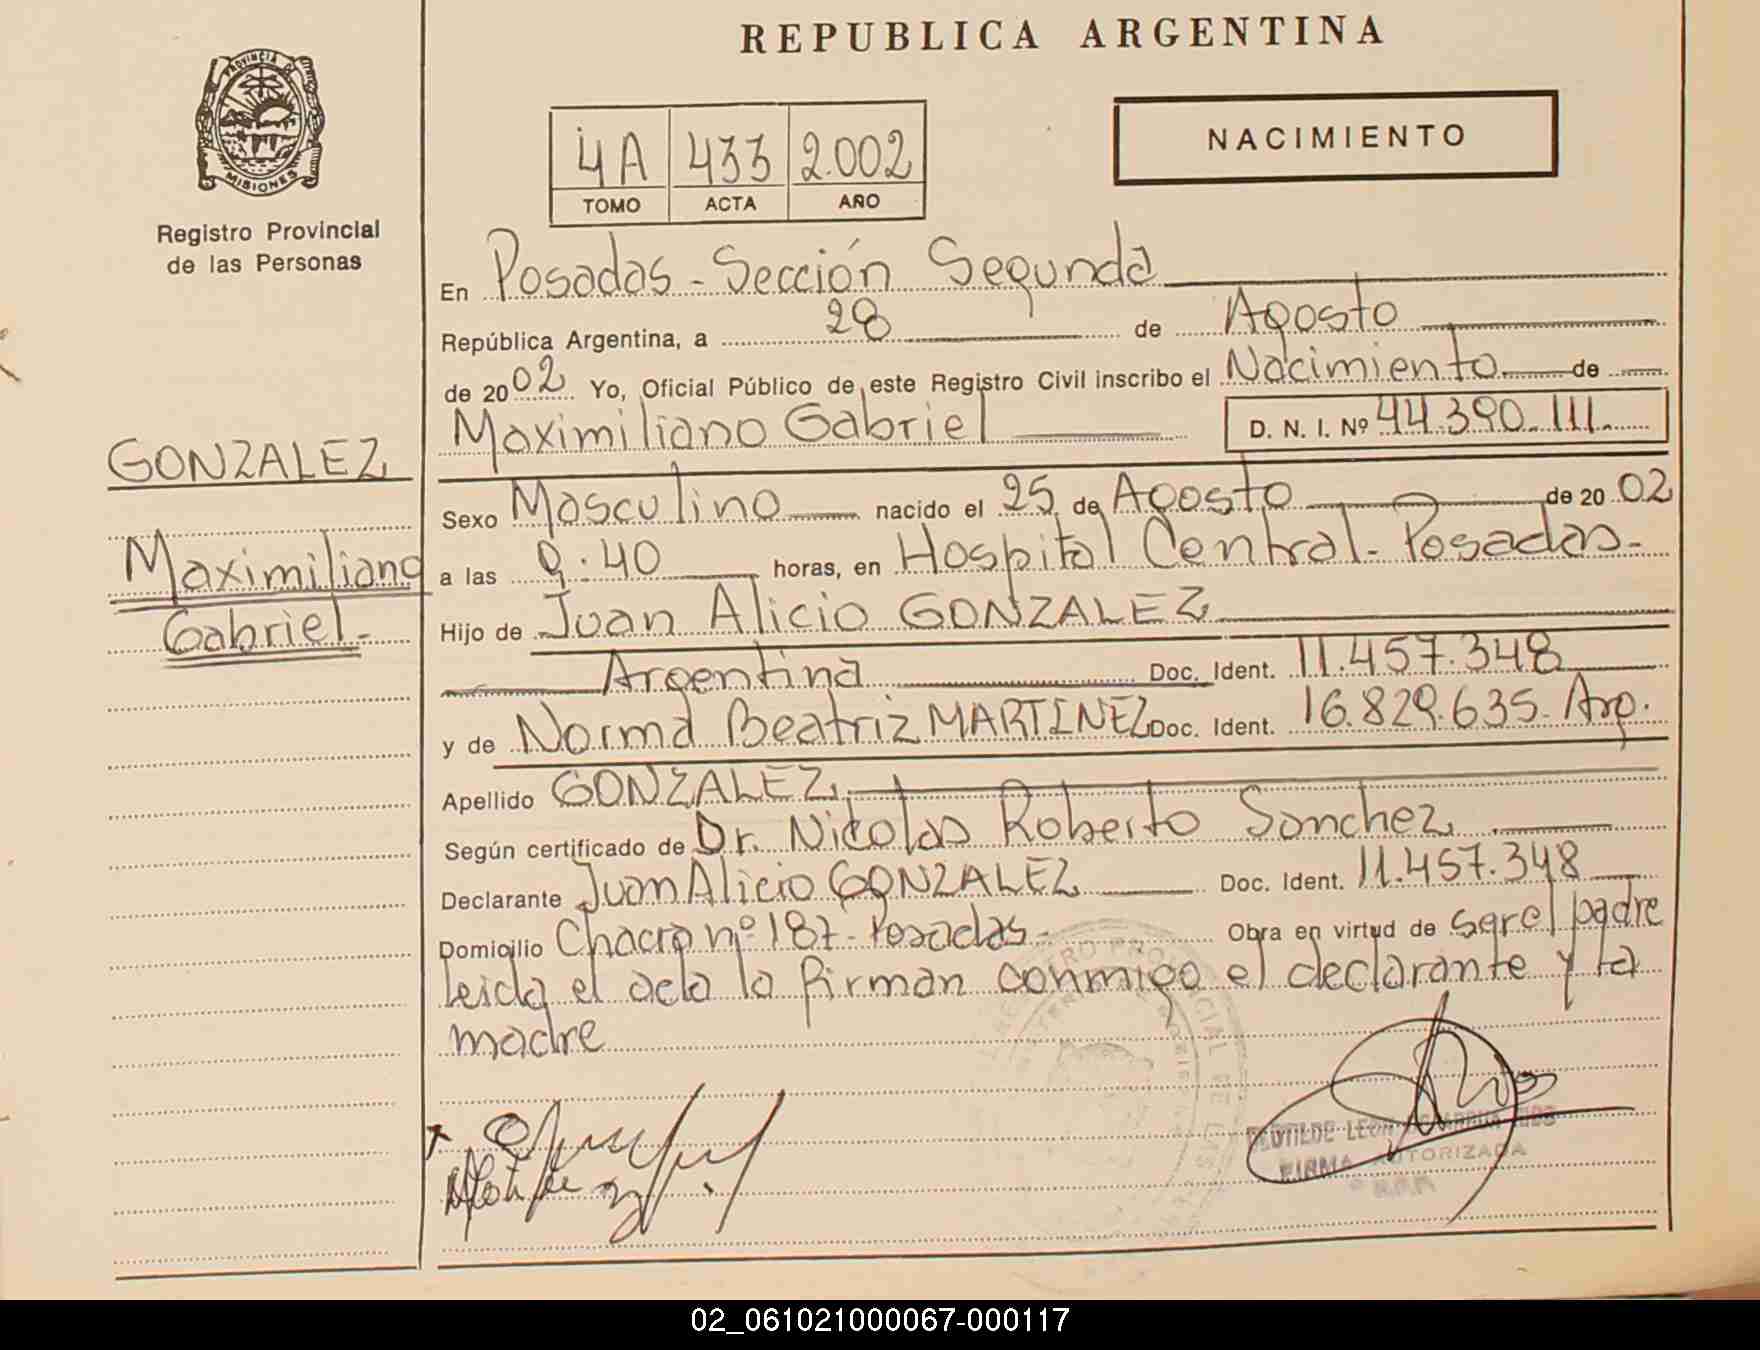 REPUBLICA ARGENTINA
PROVINCIA DE
MISIONES
Registro Provincial
de las Personas
4A 433 2.002
TOMO ACTA AÑO
NACIMIENTO
En Posadas - Sección Segunda
República Argentina, a 28 de Agosto
de 2002 Yo, Oficial Público de este Registro Civil inscribo el Nacimiento de
Maximiliano Gabriel D. N. I. Nº 44.390.111.
GONZALEZ
Sexo Masculino nacido el 25 de Agosto de 2002
Maximiliano
Gabriel.-
a las 9:40 horas, en Hospital Central - Posadas-
Hijo de Juan Alicio GONZALEZ
Argentina Doc. Ident. 11.457.348
y de Norma Beatriz MARTINEZ Doc. Ident. 16.829.635- Arg.
Apellido GONZALEZ
Según certificado de Dr. Nicolas Roberto Sanchez
Declarante Juan Alicio GONZALEZ Doc. Ident. 11.457.348
Domicilio Chacra nº 187 - Posadas - Obra en virtud de ser el padre
leida el acta la firman conmigo el declarante y la
madre
FIRMA AUTORIZADA
02_061021000067-000117